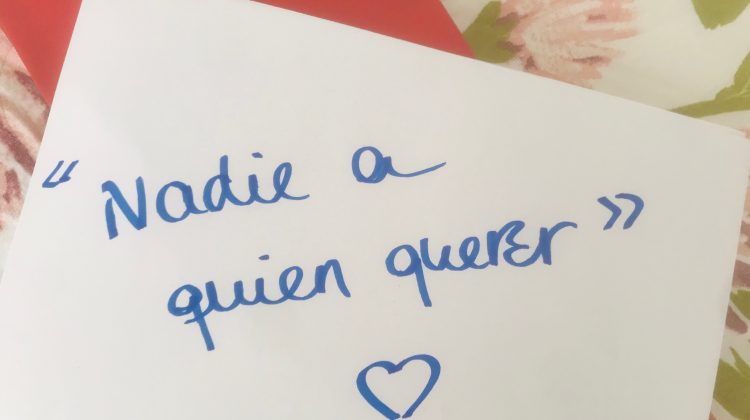 “Nadie a
quien querer”